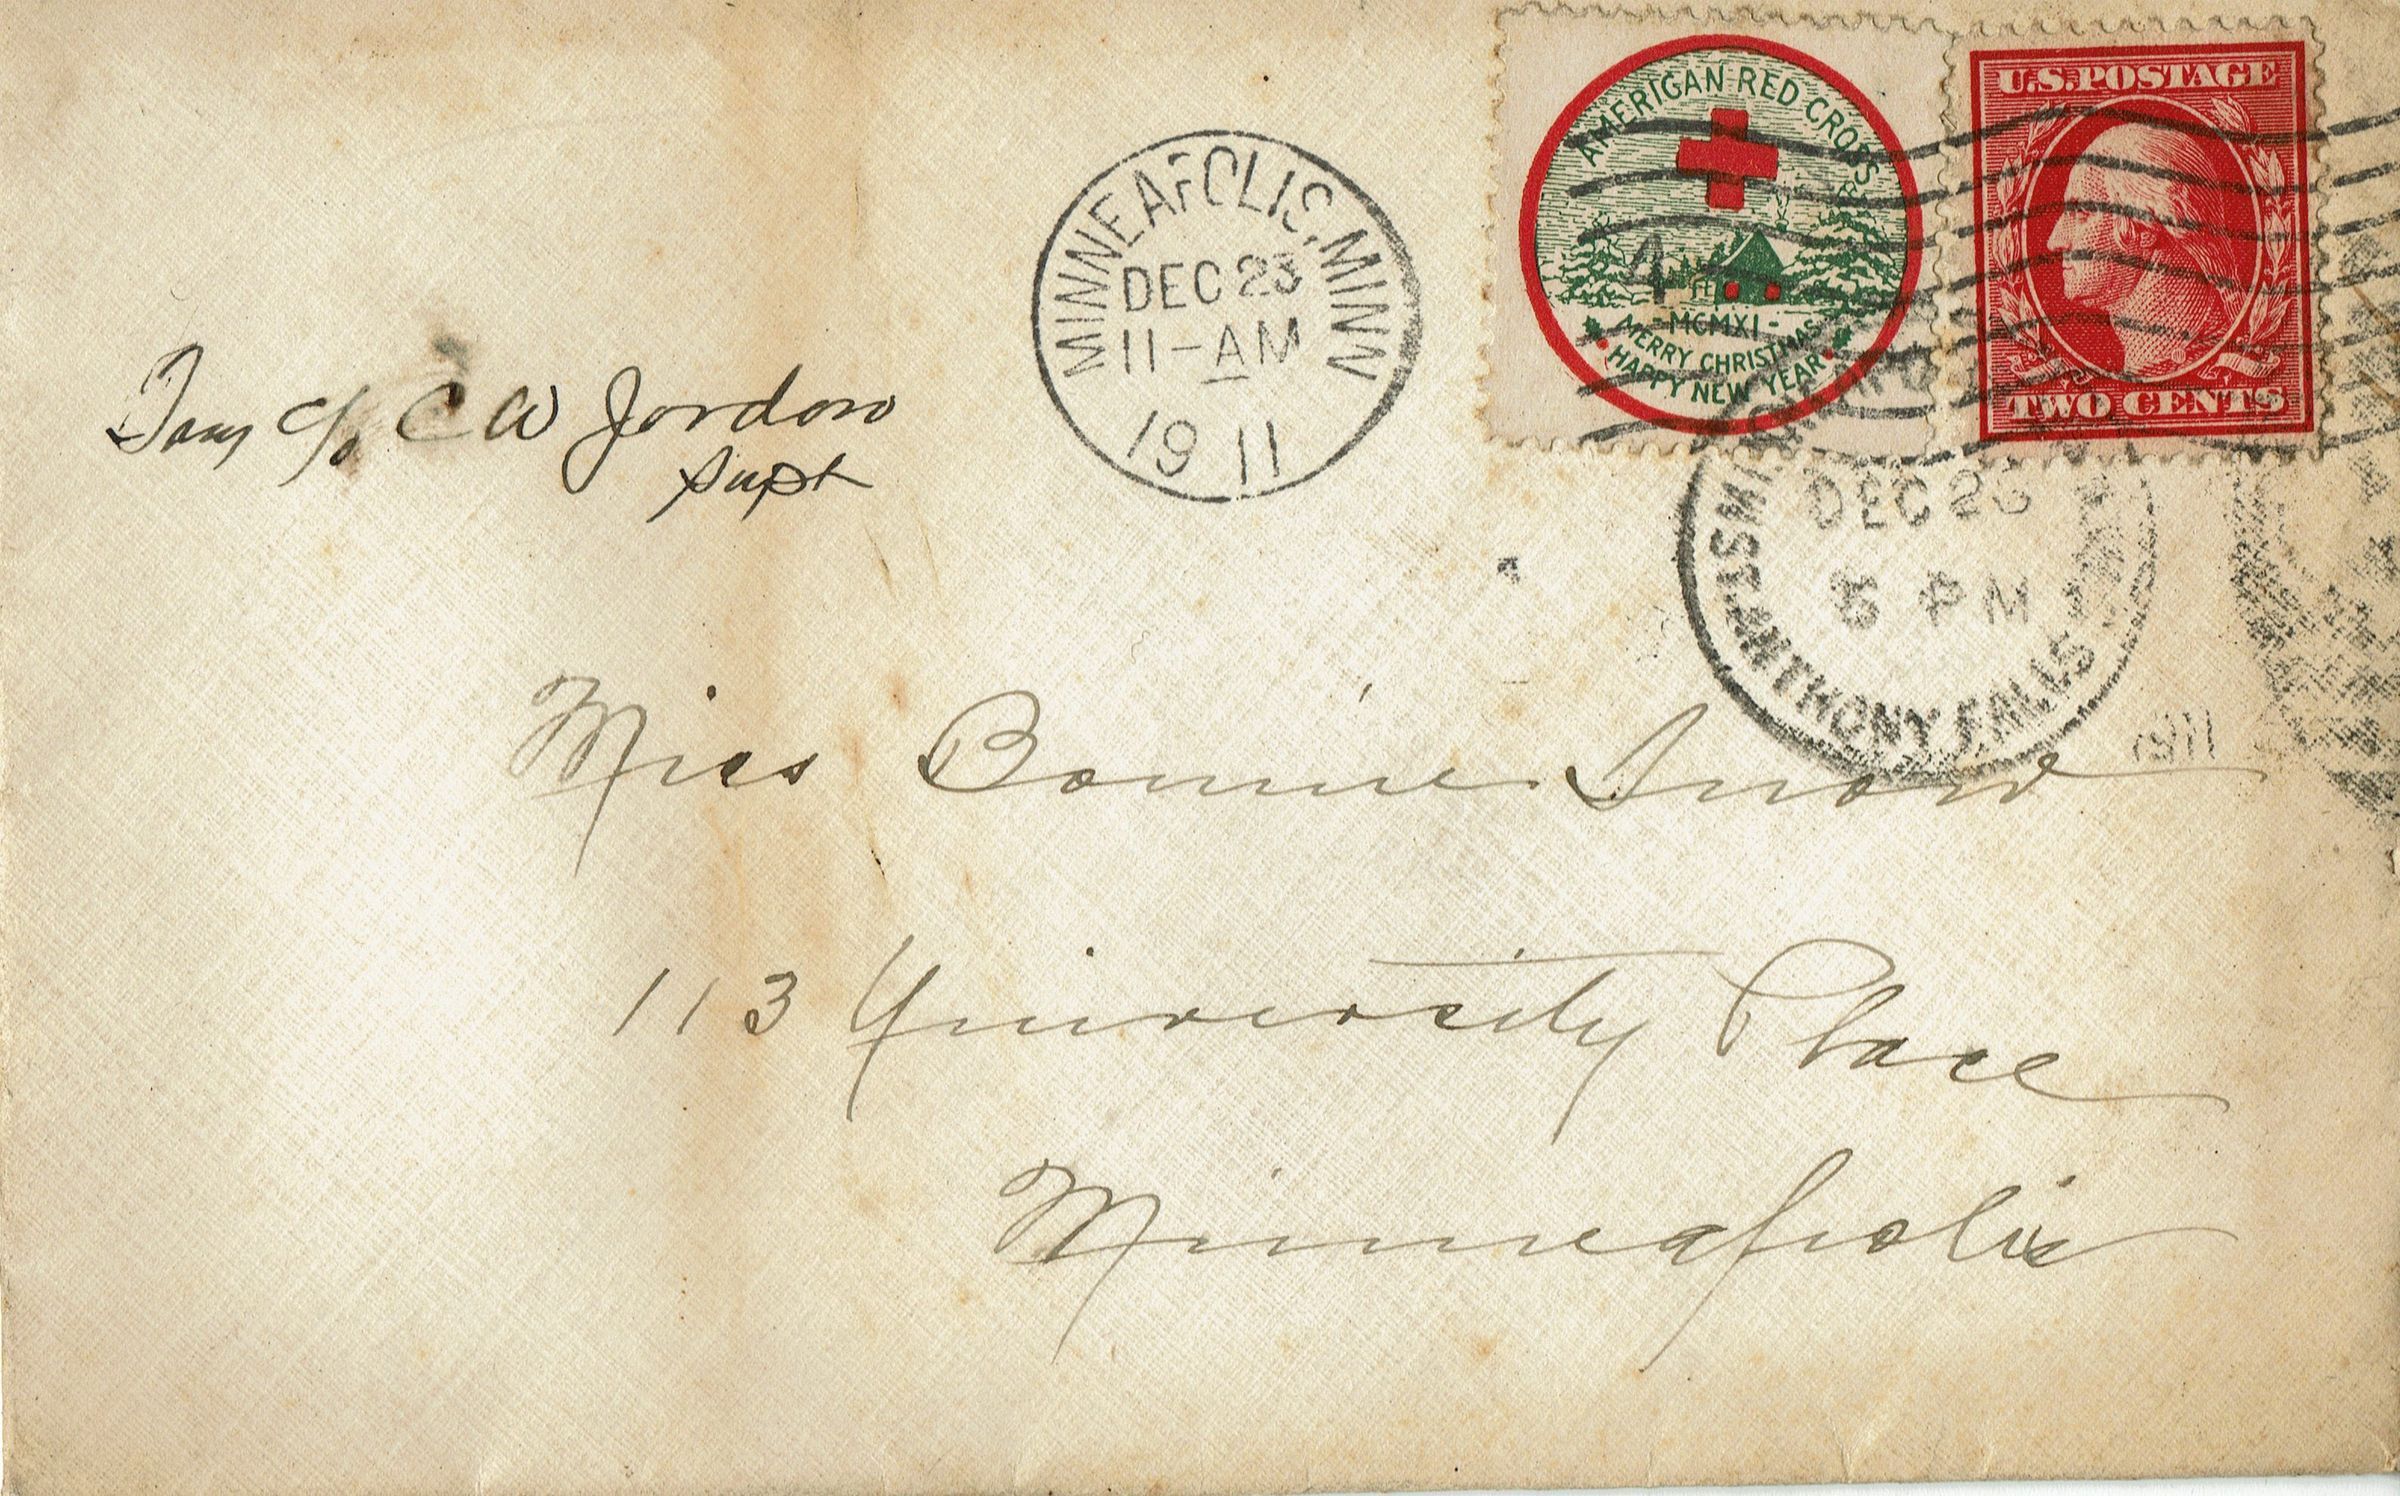 AMERICAN RED CROSS
-MCMXI-
MERRY CHRISTMAS
HAPPY NEW YEAR
U.S. POSTAGE
TWO CENTS
MINNEAPOLIS, MINN
DEC 23
11-AM
1911
4
c/o C W Jordon
Supt
DEC 23
PM
ST. ANTHONY FALLS
1911
Miss Bonnie Snow
113 University Place
Minneapolis